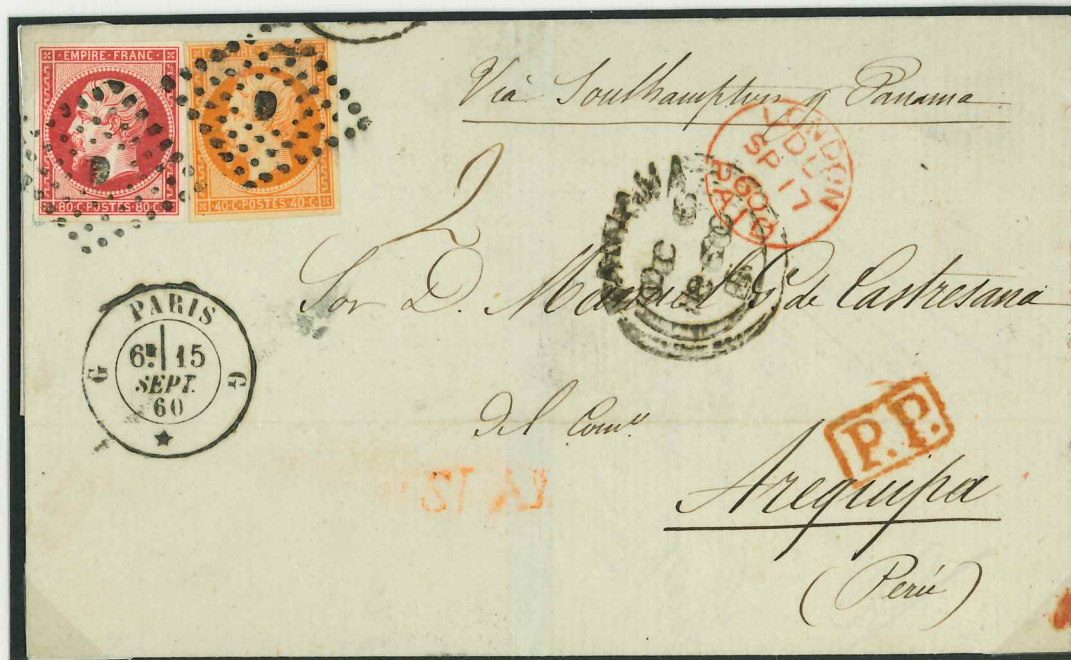 EMPIRE FRANC
80 • C • POSTES • 80 • C
40 • C • POSTES • 40 • C
D
D
Via Southampton y Panama
LONDON
SP 17
60
PAID
2
Sor D. Manuel Ga de Castresana
PARIS
15
SEPT.
60
G G
del Como
P.P.
Arequipa
(Perú)